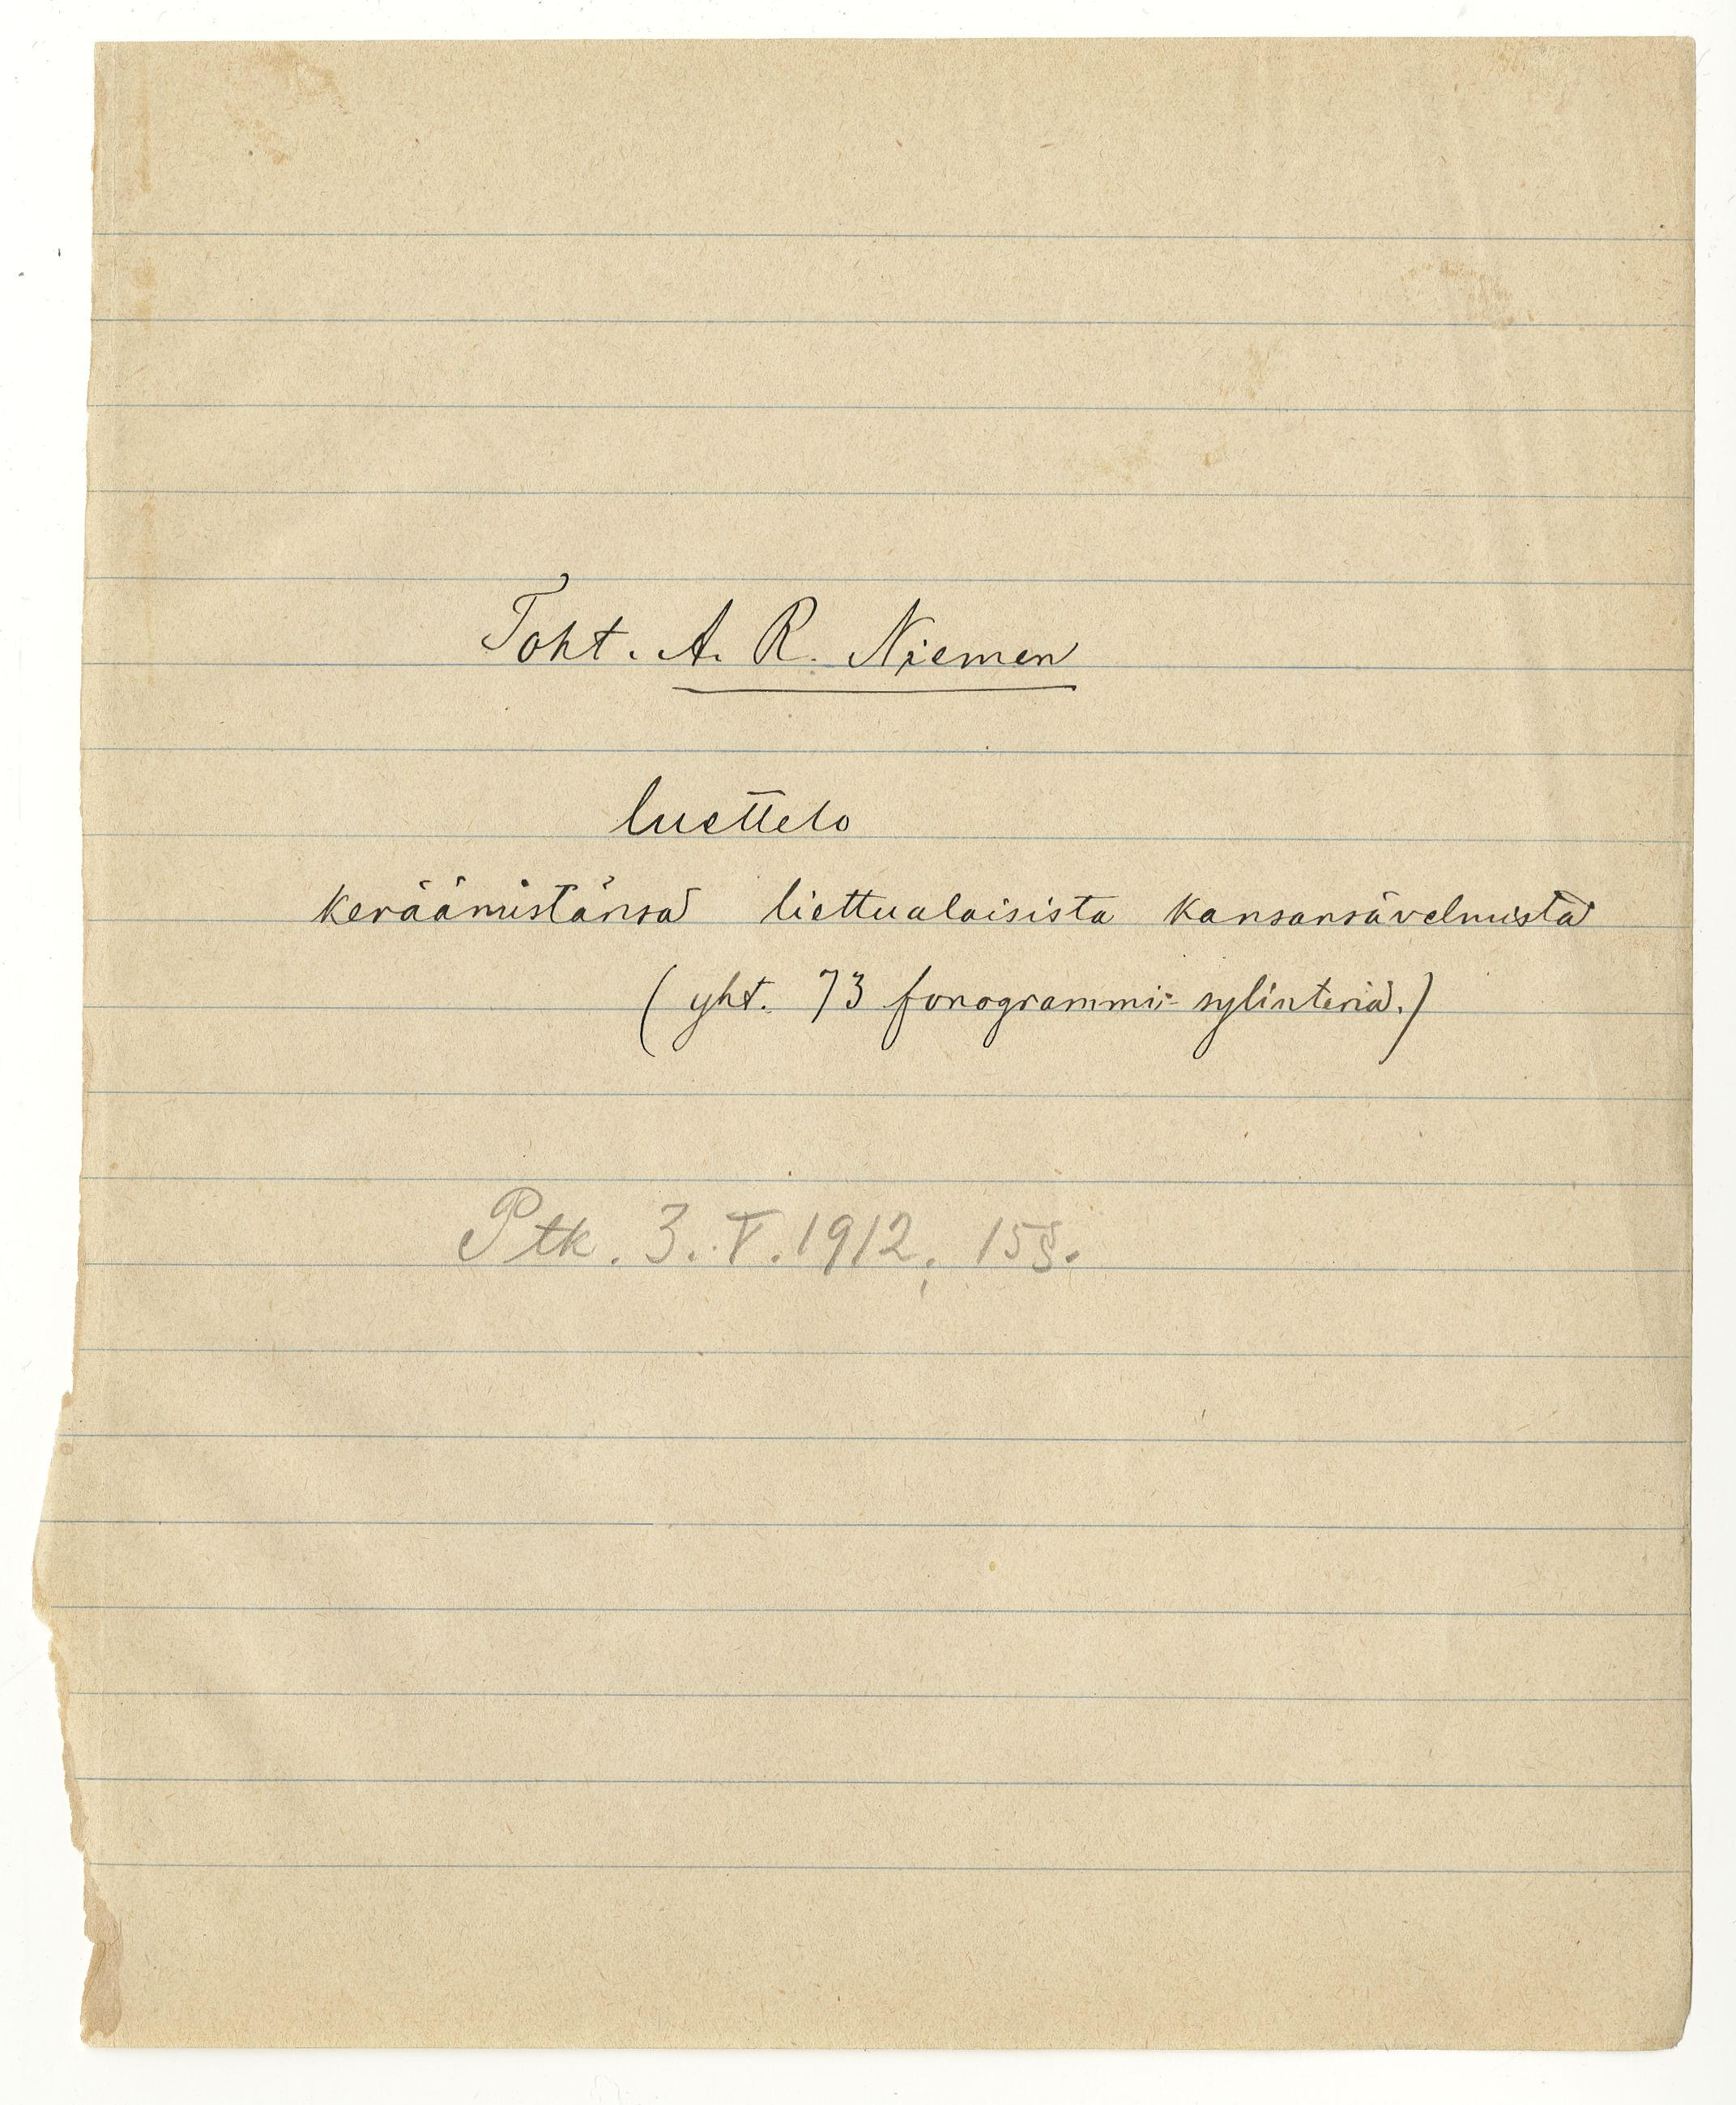 Toht. A. R. Niemen
luettelo
keräämistänsä liettualaisista kansansävelmistä
(yht. 73 fonogrammi-sylinteriä.)
Ptk. 3.V.1912, 15§.